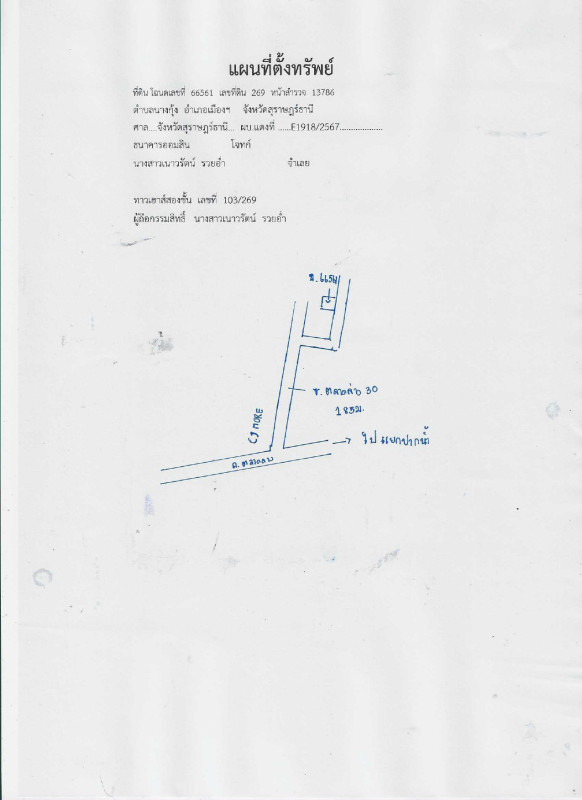 แผนที่ตั้งทรัพย์
ที่ดินโฉนดเลขที่ 66561 เลขที่ดิน 269 หน้าสำรวจ 13786
ตำบลบางกุ้ง อำเภอเมืองฯ จังหวัดสุราษฎร์ธานี
ศาล....จังหวัดสุราษฎร์ธานี.... ผบ.แดงที่ ......E1918/2567...................
ธนาคารออมสิน โจทก์
นางสาวเนาวรัตน์ รวยอ่ำ จำเลย
ทาวเฮาส์สองชั้น เลขที่ 103/269
ผู้ถือกรรมสิทธิ์ นางสาวเนาวรัตน์ รวยอ่ำ
30
CJ MORE
→ ไป แยกปากน้ำ